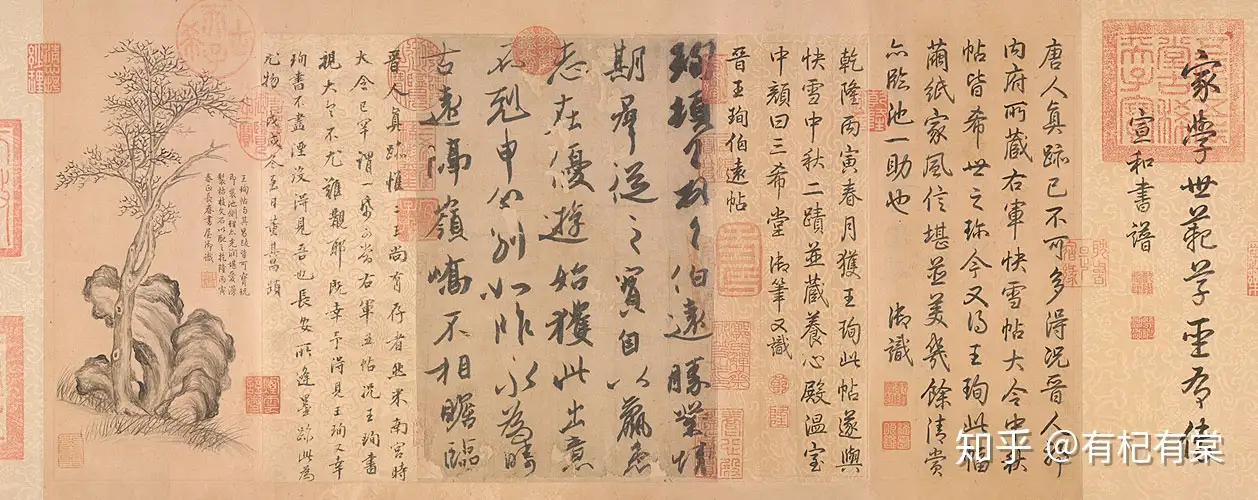 家學世範草聖有傳
宣和書譜
唐人真跡已不可多得況晉人耶
內府所藏右軍快雪帖大令中秋
帖皆希世之珍今又得王珣此幅
繭紙家風信堪並美幾餘清賞
亦臨池一助也 御識
乾隆丙寅春月獲王珣此帖遂與
快雪中秋二蹟並藏養心殿溫室
中顏曰三希堂御筆又識
晉王珣伯遠帖
珣頓首頓首伯遠勝業情
期群從之寶自以羸患
志在優遊始獲此出意
不剋申分別如昨永為疇
古遠隔嶺嶠不相瞻臨
晉人真跡惟二王尚有存者然米南宮時
大令已罕謂一紙可當右軍五帖況王珣書
視大令不尤難覯耶既幸予得見王珣又幸
珣書不盡湮沒得見吾也長安所逢墨跡此為
尤物 戊戌冬至日董其昌題
王珣帖與其昌跋皆可寶玩
即裝池側理亦光潤堪愛漫
製枯枝文石以配之乾隆丙寅
春正長春書屋御識
知乎 @有杞有棠